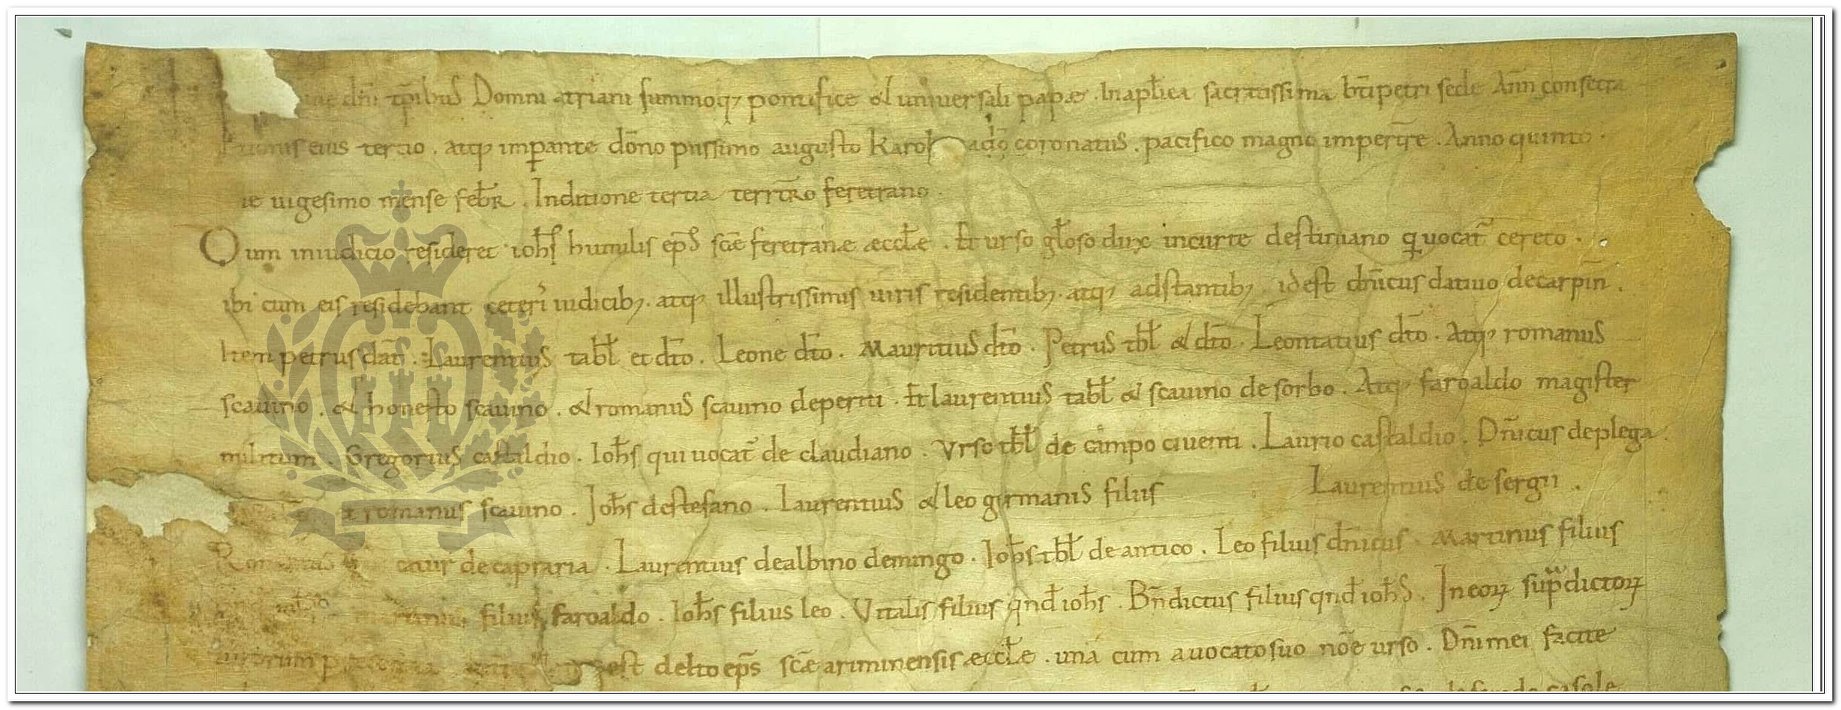 dnī tp̄ibus Domni atriani summoq; pontifice et universali papæ . Inapłica sacratissima btīpetri sede Ann̄ consecra
eius tertio . atq; imp̄ante dōno piissimo augusto Karol adō coronatus . pacifico magno impertr̄e . Anno quinto .
ie uigesimo mense febr̄ . Inditione tertia terrtr̄o feretrano .
Qum iniudicio resideret iohs̄ humilis ep̄s scē feretranæ æccłe . Et urso głoso dux incurte destinano q̄ vocat̄ cereto .
ibi cum eis residebant ceteri iudicib; . atq; illustrissimis uiris residentib; . atq; adstantib; . idest dn̄icus datiuo decarpin̄ .
Item petrus dat̄ . Laurentius tabł et dt̄o . Leone dt̄o . Mauritius dt̄o . Petrus tbł et dt̄o . Leontatius dt̄o . Atq; romanus
scauino . et honesto scauino . et romanus scauino deperiti . Et laurentius tabł et scauino de sorbo . Atq; faroaldo magister
militum Gregorius castaldio . Iohs̄ qui uocat̄ de claudiano . Urso tbł de campo ciuenti . Laurio castaldio . Dn̄icus deplega .
romanus scauino . Iohs̄ destefano . Laurentius et leo girmanis filius Laurentius de sergii .
de capraria . Laurentius dealbino demingo . Iohs̄ tbł de antico . Leo filius dn̄icus . Martinus filius
filius faroaldo . Iohs̄ filius leo . Vitalis filius qnd̄ iohs̄ . Bn̄dictus filius qnd̄ iohs̄ . In eoꝝ sup̄dictoꝝ
est delto ep̄s scē ariminensis æccłe . una cum auocato suo nōe urso . Dn̄i mei facite